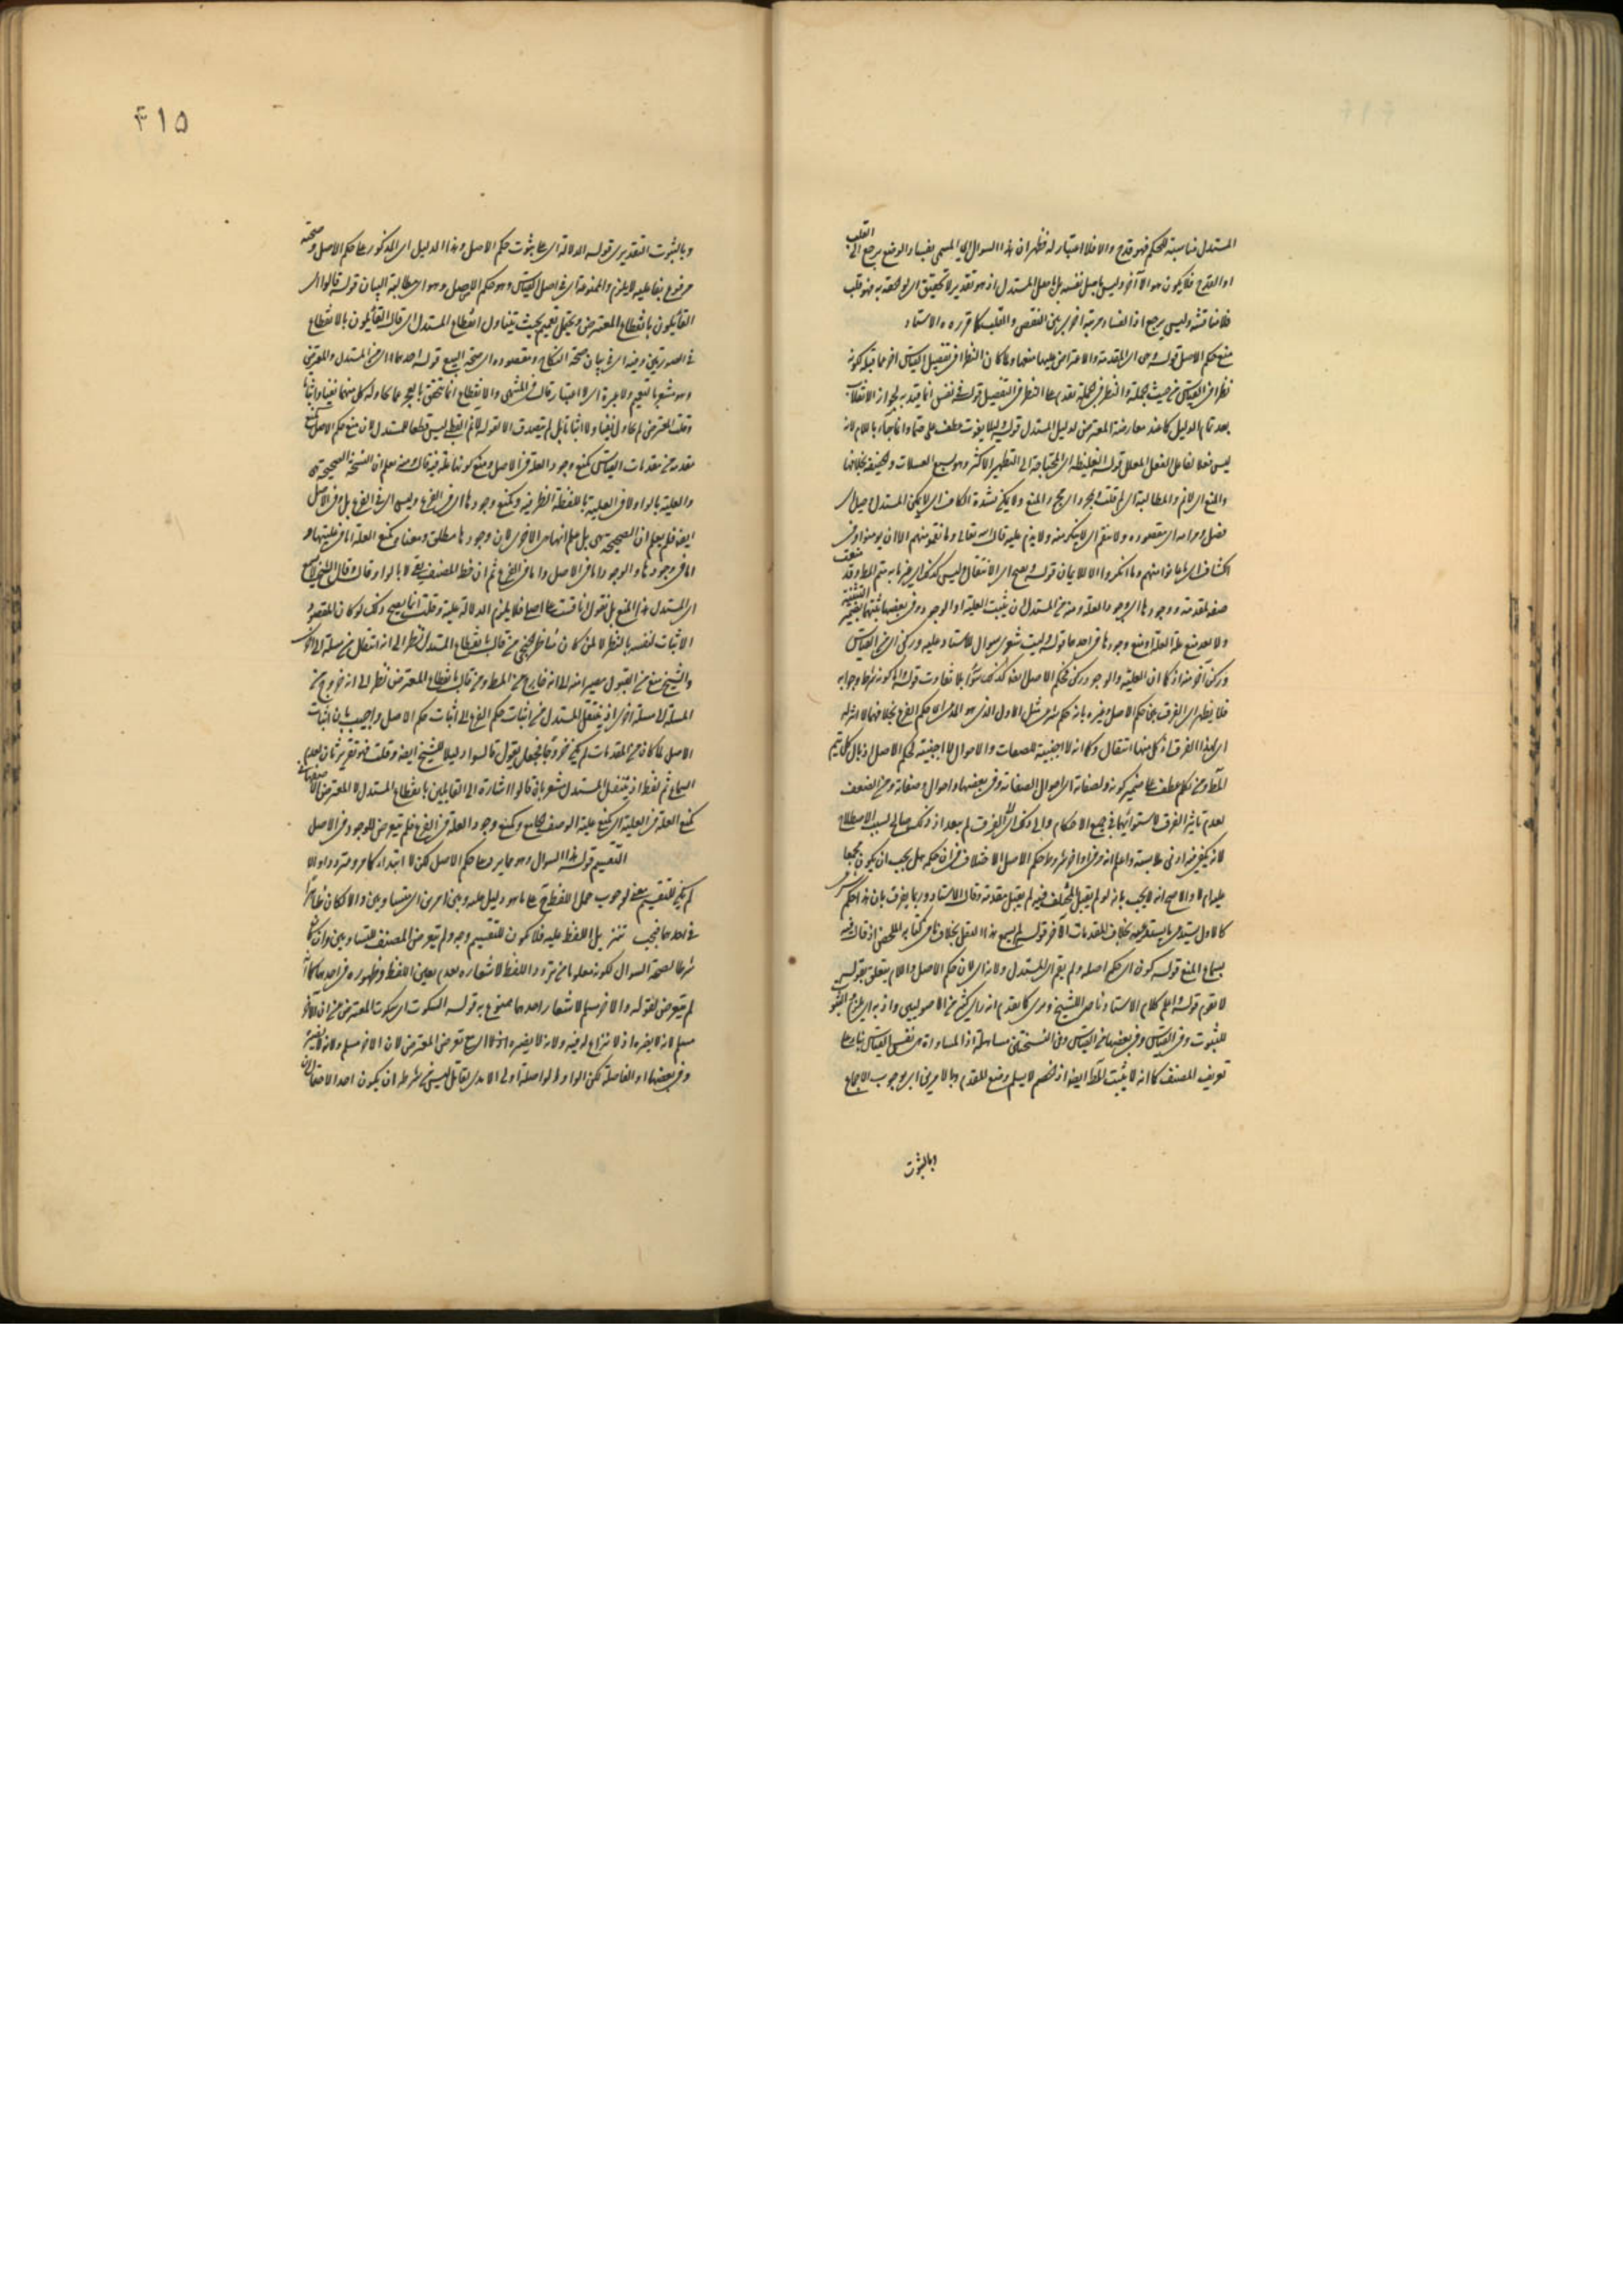 المستدل مناسبة للحكم فهو قدح والا فلا اعتبار له فظهر ان هذا السوال اي المسمى بفساد الوضع يرجع الى القلب
او القدح فلا يكون سوالا آخر وليس باصل نفسه بل اصل المستدل اذ هو تقدير لا تحقيق اي لو لحقه به فهو قلب
فلا مناقشة وليس يرجع اذا الفساد مرتبة اخرى بين النقض والقلب كما قرره الاستاد
منع حكم الاصل قوله هي اي المقدمة والاعتراض عليها منعها ولما كان النظر في تفصيل القياس اخر مما قبله لكونه
نظرا في القياس من حيث الجملة والنظر في الجملة تقدم على النظر في التفصيل قوله في نفس انما قيد به لجواز الانقلاب
بعد تمام الدليل كما عند معارضة المعترض لدليل المستدل قوله لئلا يفوت عطف على
ليس فعلا لفاعل الفعل المعلل قوله الغليظة اي المحتاجة الى التطهير الاكثر وهو سبع الغسلات والخفيفة بخلافها
والمنع اي لانم والمطالبة اي لم قلت بمجرد اي بمجرد المنع ولا يكن
مقصوده ولا ينقم اي لا ينكر منه ولا يذم عليه قال الله تعالى وما نقموا منهم الا ان يومنوا وفي
الكشاف اي ما عابوا منهم وما انكروا الا الايمان قوله يصح اي الانتقال وليس كذلك اي غير ما به يتم المط وقد منعت
صفة لمقدمة ووجودها اي وجود العلة ومنه من المستدل ان يثبت العلية او الوجود وفي بعضها يثبتها بضمير التثنية
ولا بعد منع علة العلة او منع وجودها في احدهما قوله ليت شعري سوال للاستاد عليه وركن اي من القياس
وركن آخر منه اذ كما ان العلية والوجود ركن فحكم الاصل ايضا كذلك سواء بلا تفاوت قوله
فلا يظهر اي الفرق بين حكم الاصل وغيره بانه حكم شرعي مثل الاول الذي هو المدعى اي حكم الفرع بخلافها لا اثر له
اي لهذا الفرق اذ كل منهما انتقال وكما انه لا اجنبية للصفات والاحوال لا اجنبية لحكم الاصل اذ بالكل يتم
المط ومن لكم عطف على ضمير كونه ولصفاته اي احوال الصفاته وفي بعضها واحوال وصفاته ومن الضعف
بعدم تاثير الفرق لاستوائهما في جميع الاحكام والى ذلك اي الفرق لم يبعد اذ ذلك حالي لسبب الاصطلاح
لانه يكفي فيه ادنى ملابسة واعلم انه وقد اوانه شروط حكم الاصل الاختلاف في ان حكمه هل يجب ان يكون مجمعا
عليه ام لا والاصح انه لا يجب بانه لو لم يقبل المختلف فيه لم يقبل مقدمة وقال الاستاد وربما يفرق بان هذا حكم شرعي
كالاول يستدعي ما يستدعيه بخلاف المقدمات الآخر قوله لم يسمع هذا النقل بخلاف ما في كتابه الملخص اذ قال فيه
بسماع المنع قوله كونه اي حكم اصله ولم يقم اي المستدل ولانه اي لان حكم الاصل واللام يتعلق بقوله
لا يقوم قوله اعلم كلام الاستاد ناصر للشيخ وهي كما تقدم انه راي كثير من الاصوليين واذ به اي يلزم الثبوت
للثبوت وفي القياس وفي بعضها من القياس وفي النسختين مساهلة اذ المساواة هي نفس القياس بناء على
تعريف المصنف كما انه لا يثبت المط ايضا اذ الخصم لا يسلم وضع المقدم وبالامرين اي بوجوب الاجماع
وبالثبوت
۴۱۵
وبالثبوت التقديري قوله الدلالة اي على ثبوت حكم الاصل وهذا الدليل اي المذكور على حكم الاصل وصحته
مرفوع بفاعلية لا يلزم والممنوعة اي في اصل القياس وهو حكم الاصل وهو اي مطالبة البيان قوله قالوا اي
القائلون بانقطاع المعترض ويحتمل تعميم بحيث يتناول انقطاع المستدل اي قال القائلون بالانقطاع
في الصورتين وفيه اي في بيان صحة النكاح ومقصوده اي صحة البيع قوله احدهما اي من المستدل والمعترض
وهو مشعر بالتعميم ولا عبرة اي لا اعتبار قال في المنتهى والانقطاع انما يتحقق بالعجز عما يحاوله كل منهما نفيا واثباتا
وقلت المعترض لم يحاول نفيا ولا اثباتا بل لم يتصد الا لقوله لانم القطع ليس قطعا للمستدل لان منع حكم الاصل كمنع
مقدمة من مقدمات القياس كمنع وجود العلة في الاصل ومنع كونها علة فيه قال ومن يعلم ان النسخة الصحيحة هي
والعلية بالواو لا في العلية باللفظة الظرفية وكمنع وجودها اي في الفرع وليس اي في الفرع بل في الاصل
ايضا فلم يعلم ان الصحيحة هي بل علم انها هي الاخرى لان وجودها مطلق ومعناه كمنع العلة اما في عليتها و
اما في وجودها والوجود اما في الاصل واما في الفرع ثم ان خط المصنف بلا بالواو قال وقال الشيخ لا يسمع
اي المستدل هذا المنع بل يقول انما قست على اصلي فلا يلزم الدلالة عليه وقلت انما يصح ذلك لو كان المقصود
الاثبات لنفسه بالنظر لا لمن كان مناظر الخصم من قال بانقطاع المستدل نظر الى انه انتقل من مسلة الى اخرى
والشيخ منع من القبول مصيرا منه الى انه خارج عن المط ومن قال بانقطاع المعترض نظر الى انه خروج من
المسلة الى مسلة اخرى اذ ينتقل المستدل من اثبات حكم الفرع الى اثبات حكم الاصل واجيب بان اثبات
الاصل لما كان من المقدمات لم يكن خروجا فجعل يقول قالوا دليلا للشيخ ايضا وقلت فهو تقرير ثان لعدم
السماع ثم لفظ اذ ينتقل المستدل مشعر بان قالوا اشارة الى القايلين بانقطاع المستدل لا المعترض
كمنع العلة في العلية اي كمنع علية الوصف الجامع وكمنع وجود العلة في الفرع فلم يتعرض للوجود في الاصل
التقسيم قوله هذا السوال وهو مما يرد على حكم الاصل لكن لا ابتداء كما مر ومتردد اوالا
لم يكن للتقسيم معنى لوجوب حمل اللفظ على ما هو دليل عليه وبين امرين اي متساويين والا لكان ظاهرا
في احدهما فيجب تنزيل اللفظ عليه فلا يكون للتقسيم وجه ولم يتعرض المصنف للتساويين وان كان
شرطا لصحة السوال لكونه معلوما من تردد اللفظ لاشعاره بعدم تعين اللفظ وظهوره في احدهما كما انه
لم يتعرض لقوله والاخر مسلم لاشعار احدهما ممنوع به قوله السكوت اي سكوت المعترض عن ان الآخر
مسلم لانه لا يضره اذ لا نزاع له فيه ولانه لا يضره
وفي بعضها او الفاصلة لكن الواو الواصلة اولى الآمدي يقابل ليس من شرطه ان يكون احد الاحتمالين